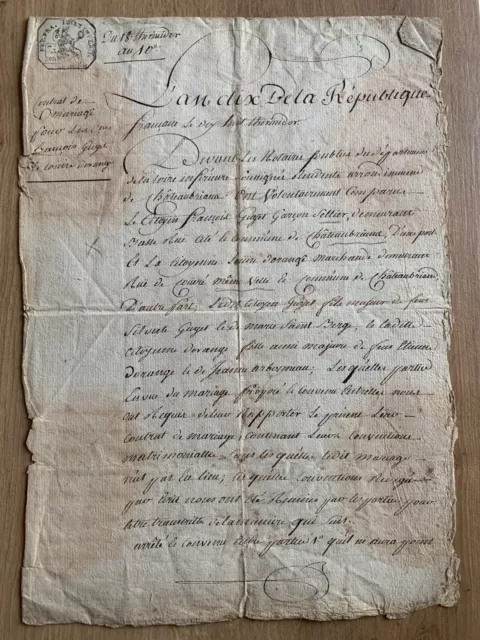 Du 18 thermidor
au 10e
Contrat de
Mariage
pour Les Cens
François Guyot
L'an dix De la République
française Le dix huit thermidor.
Devant Les Notaires publics du département
de la Loire inférieure Soussignés Résidents arrondissement
de Châteaubriand Ont Volontairement Comparu
Le Citoyen François Guyot Garçon Sellier, demeurant
Basse Rue Cité & Commune de Châteaubriand, D'une part
Et La Citoyenne dorange Marchande demeurant
Rue de Couëré même Ville & Commune de Châteaubriand
D'autre part, Ledit Citoyen Guyot fils majeur de feus
Guyot & de marie Saint la ditte
Citoyenne dorange fille aussi majeure de feus Etienne
dorange & de jeanne Les quelles parties
En vue du mariage & Convenu Entrelles nous
ont Requis de leur Rapporter Le présent
Contrat de mariage Contenant Leurs Conventions
matrimoniales Sans Les quelles Ledit mariage
n'eut pas Eu lieu, Les quelles Conventions
par Ecrit nous ont été Remises par les parties pour
être transcrittes de la manière qui Suit.
arrêté & Convenu Entre parties 1° qu'il n'aura point